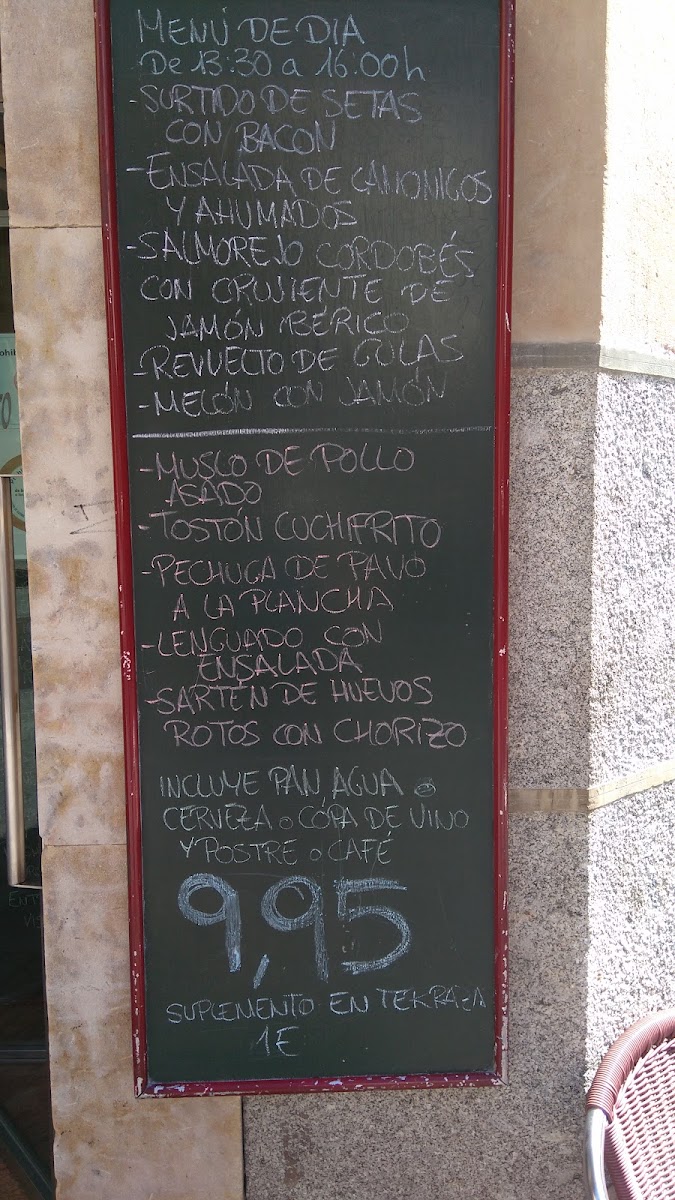 MENÚ DE DIA
De 13:30 a 16:00h
-SURTIDO DE SETAS
CON BACON
-ENSALADA DE CANONIGOS
Y AHUMADOS
-SALMOREJO CORDOBÉS
CON CRUJIENTE DE
JAMÓN IBÉRICO
-REVUELTO DE GULAS
-MELÓN CON JAMÓN
-MUSLO DE POLLO
ASADO
-TOSTÓN CUCHIFRITO
-PECHUGA DE PAVO
A LA PLANCHA
-LENGUADO CON
ENSALADA
-SARTÉN DE HUEVOS
ROTOS CON CHORIZO
INCLUYE PAN, AGUA o
CERVEZA o CÓPA DE VINO
Y POSTRE o CAFÉ
9,95
SUPLEMENTO EN TERRAZA
1E